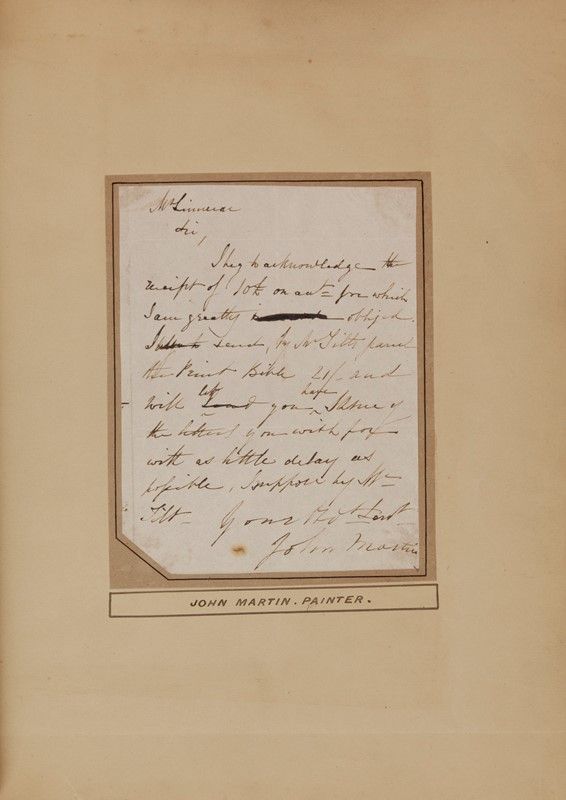 Mr Linnecar
Sir,
I beg to acknowledge the
receipt of 10£ on act= for which
I am greatly obliged.
I send, by Mr Tilts parcel
the Print Bible 21/- and
will let you have some of
the letters you wish for
with as little delay as
possible, I suppose by Mr
Tilt- Your Obt Servt
John Martin
JOHN MARTIN. PAINTER.